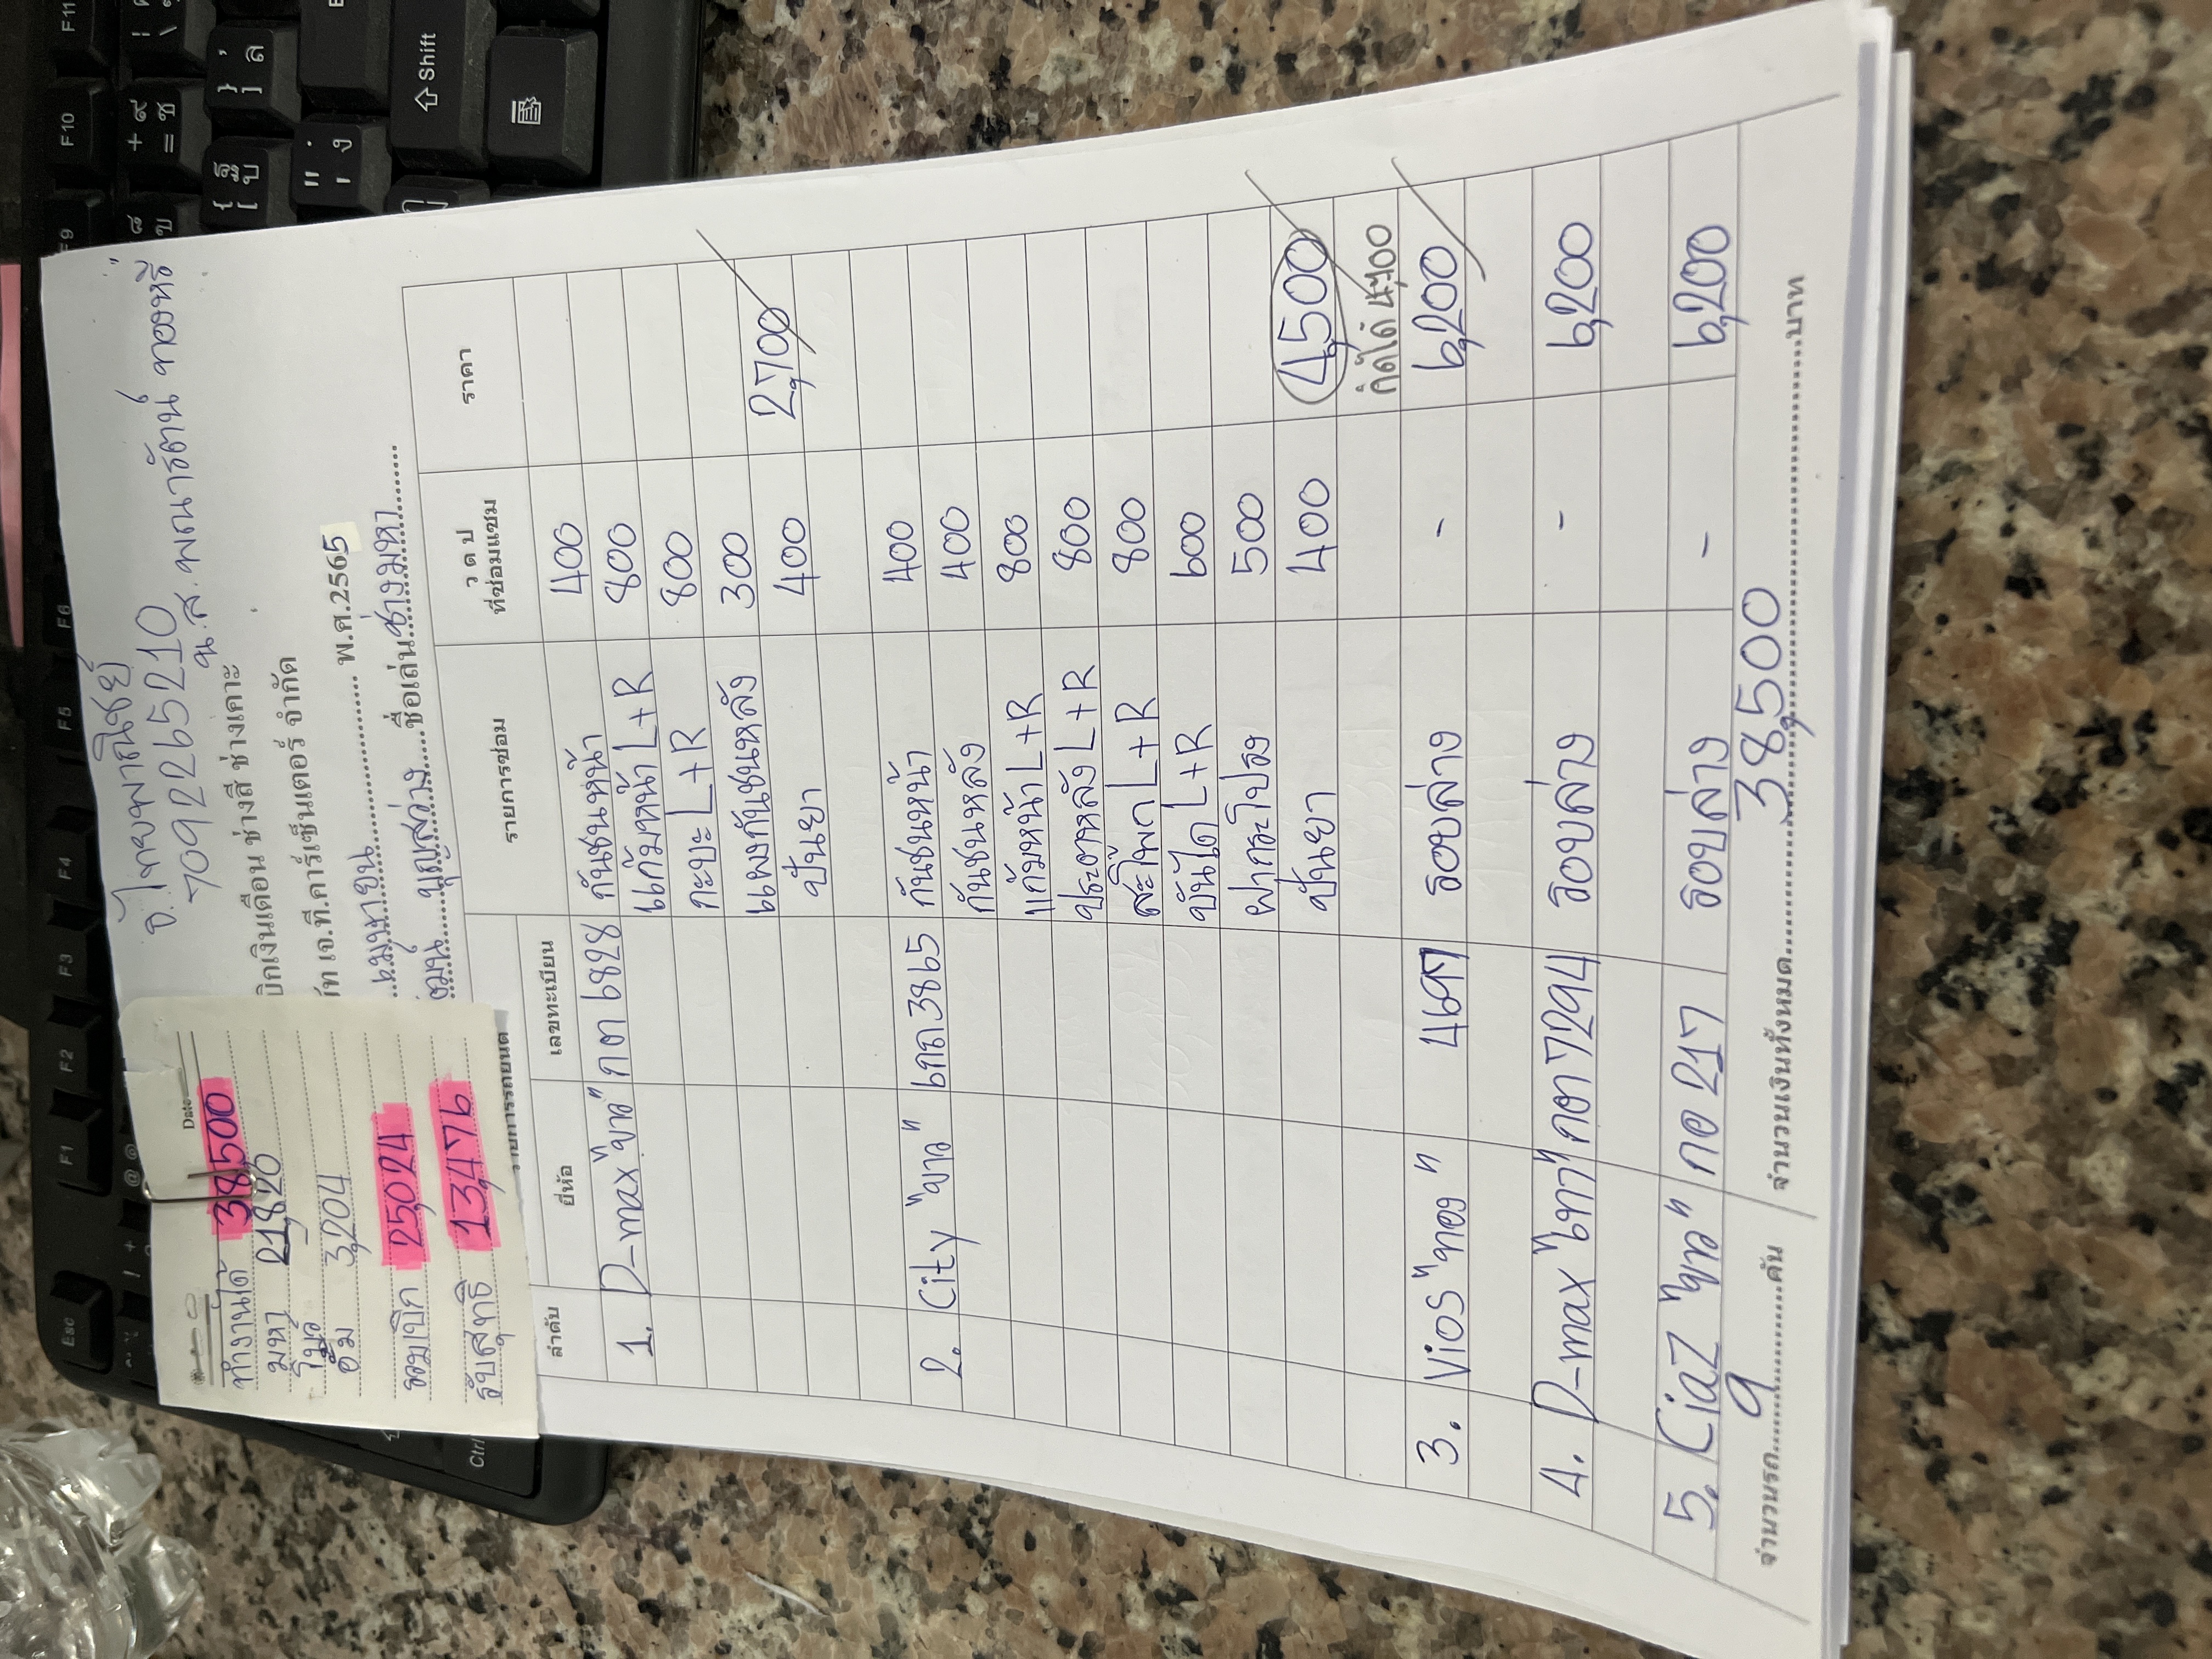 ธ.ไทยพาณิชย์
7092265210
น.ส.พถนารัตน์ ทองหลี
Date
ทำงานได้ 38,500
มหา 21,820
โบว์
อั๋ม 3,204
รวมเบิก 25,024
รับสุทธิ 13,476
บิกเงินเดือน ช่างสี ช่างเคาะ
ัท เจ.ที.คาร์เซ็นเตอร์ จำกัด
เมษายน พ.ศ.2565
บุญสว่าง ชื่อเล่น ช่างมหา
รายการรถยนต์
ลำดับ ยี่ห้อ เลขทะเบียน รายการซ่อม ว ด ป ที่ซ่อมแซม ราคา
1. D-max "ขาว" กต 6828 กันชนหน้า 400
แก้มหน้า L+R 800
กะบะ L+R 800
แผงกันชนหลัง 300 2,700
ปั่นยา 400
2. City "ขาว" 6กถ 3865 กันชนหน้า 400
กันชนหลัง 400
แก้มหน้า L+R 800
ประตูหลัง L+R 800
สะโพก L+R 800
บันได L+R 600
ฝากระโปรง 500
ปั่นยา 400 4,500
คิดได้ 4,700
3. Vios "ทอง" 4697 รอบล่าง - 6,200
4. D-max "เทา" กต 7294 รอบล่าง - 6,200
5. Ciaz "ขาว" กอ 217 รอบล่าง - 6,200
จำนวนรถ 9 คัน จำนวนเงินทั้งหมด 38,500 บาท
Esc
F1
F2
F3
F4
F5
F6
F9
F10
F11
Shift
Ctrl